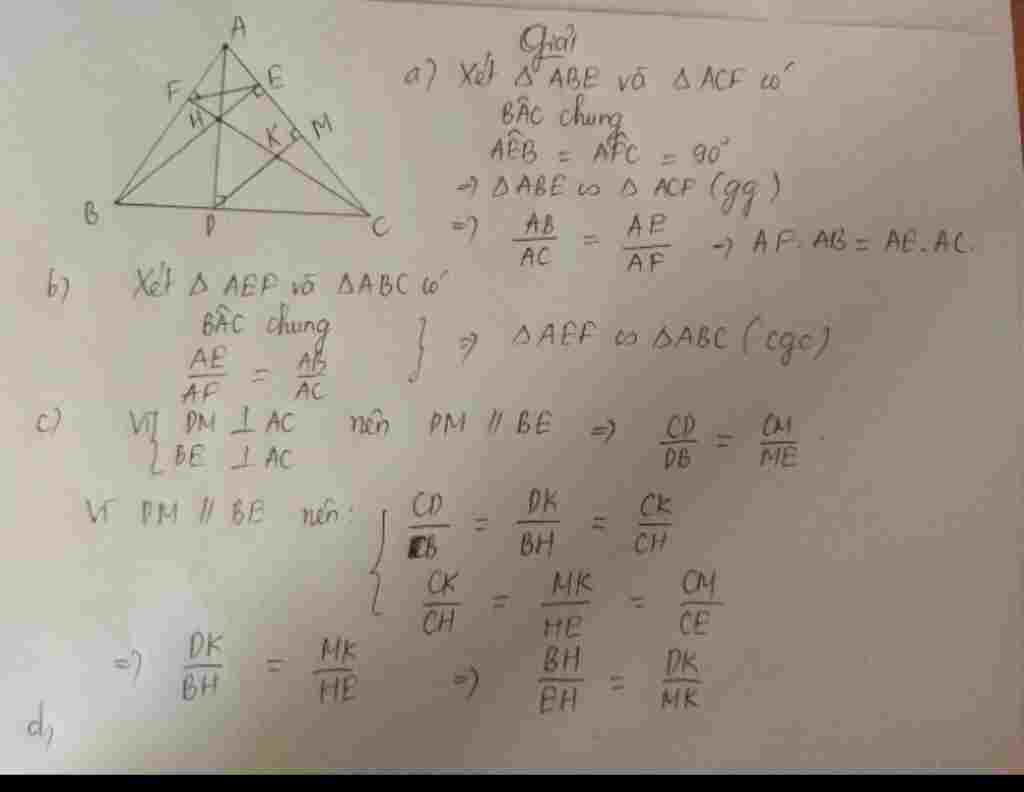 Giải
A
F
E
H
K
M
B
D
C
a) Xét Δ ABE và Δ ACF có
BÂC chung
AÊB = AF̂C = 90°
⇒ Δ ABE ∽ Δ ACF (gg)
⇒ AB/AC = AE/AF ⇒ AF.AB = AE.AC.
b) Xét Δ AEF và Δ ABC có
BÂC chung
AE/AF = AB/AC } ⇒ Δ AEF ∽ Δ ABC (cgc)
c) Vì { DM ⊥ AC nên DM // BE ⇒ CD/DB = CM/ME.
BE ⊥ AC
Vì DM // BE nên: { CD/CB = DK/BH = CK/CH
CK/CH = MK/HE = CM/CE
⇒ DK/BH = MK/HE ⇒ BH/EH = DK/MK
d,